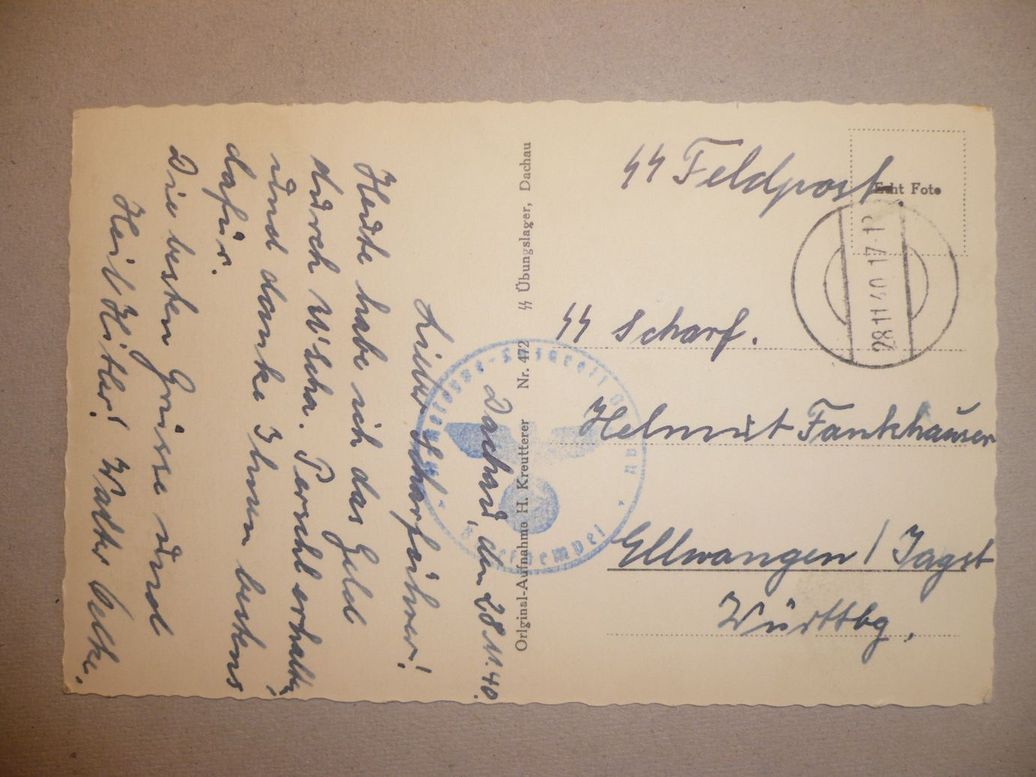 Dachau, den 28.11.40.
Lieber Scharführer!
Heute habe ich das Geld
durch U'Scha. erhalten,
und danke Ihnen bestens
dafür.
Die besten Grüsse und
Heil Hitler! Walter
Original-Aufnahme H. Kreutterer Nr. 472 ᛋᛋ Übungslager, Dachau
Echt Foto
28.11.40.17-18
ᛋᛋ Feldpost.
ᛋᛋ Scharf.
Helmut Fankhäuser
Ellwangen / Jagst
Württbg.
Briefstempel